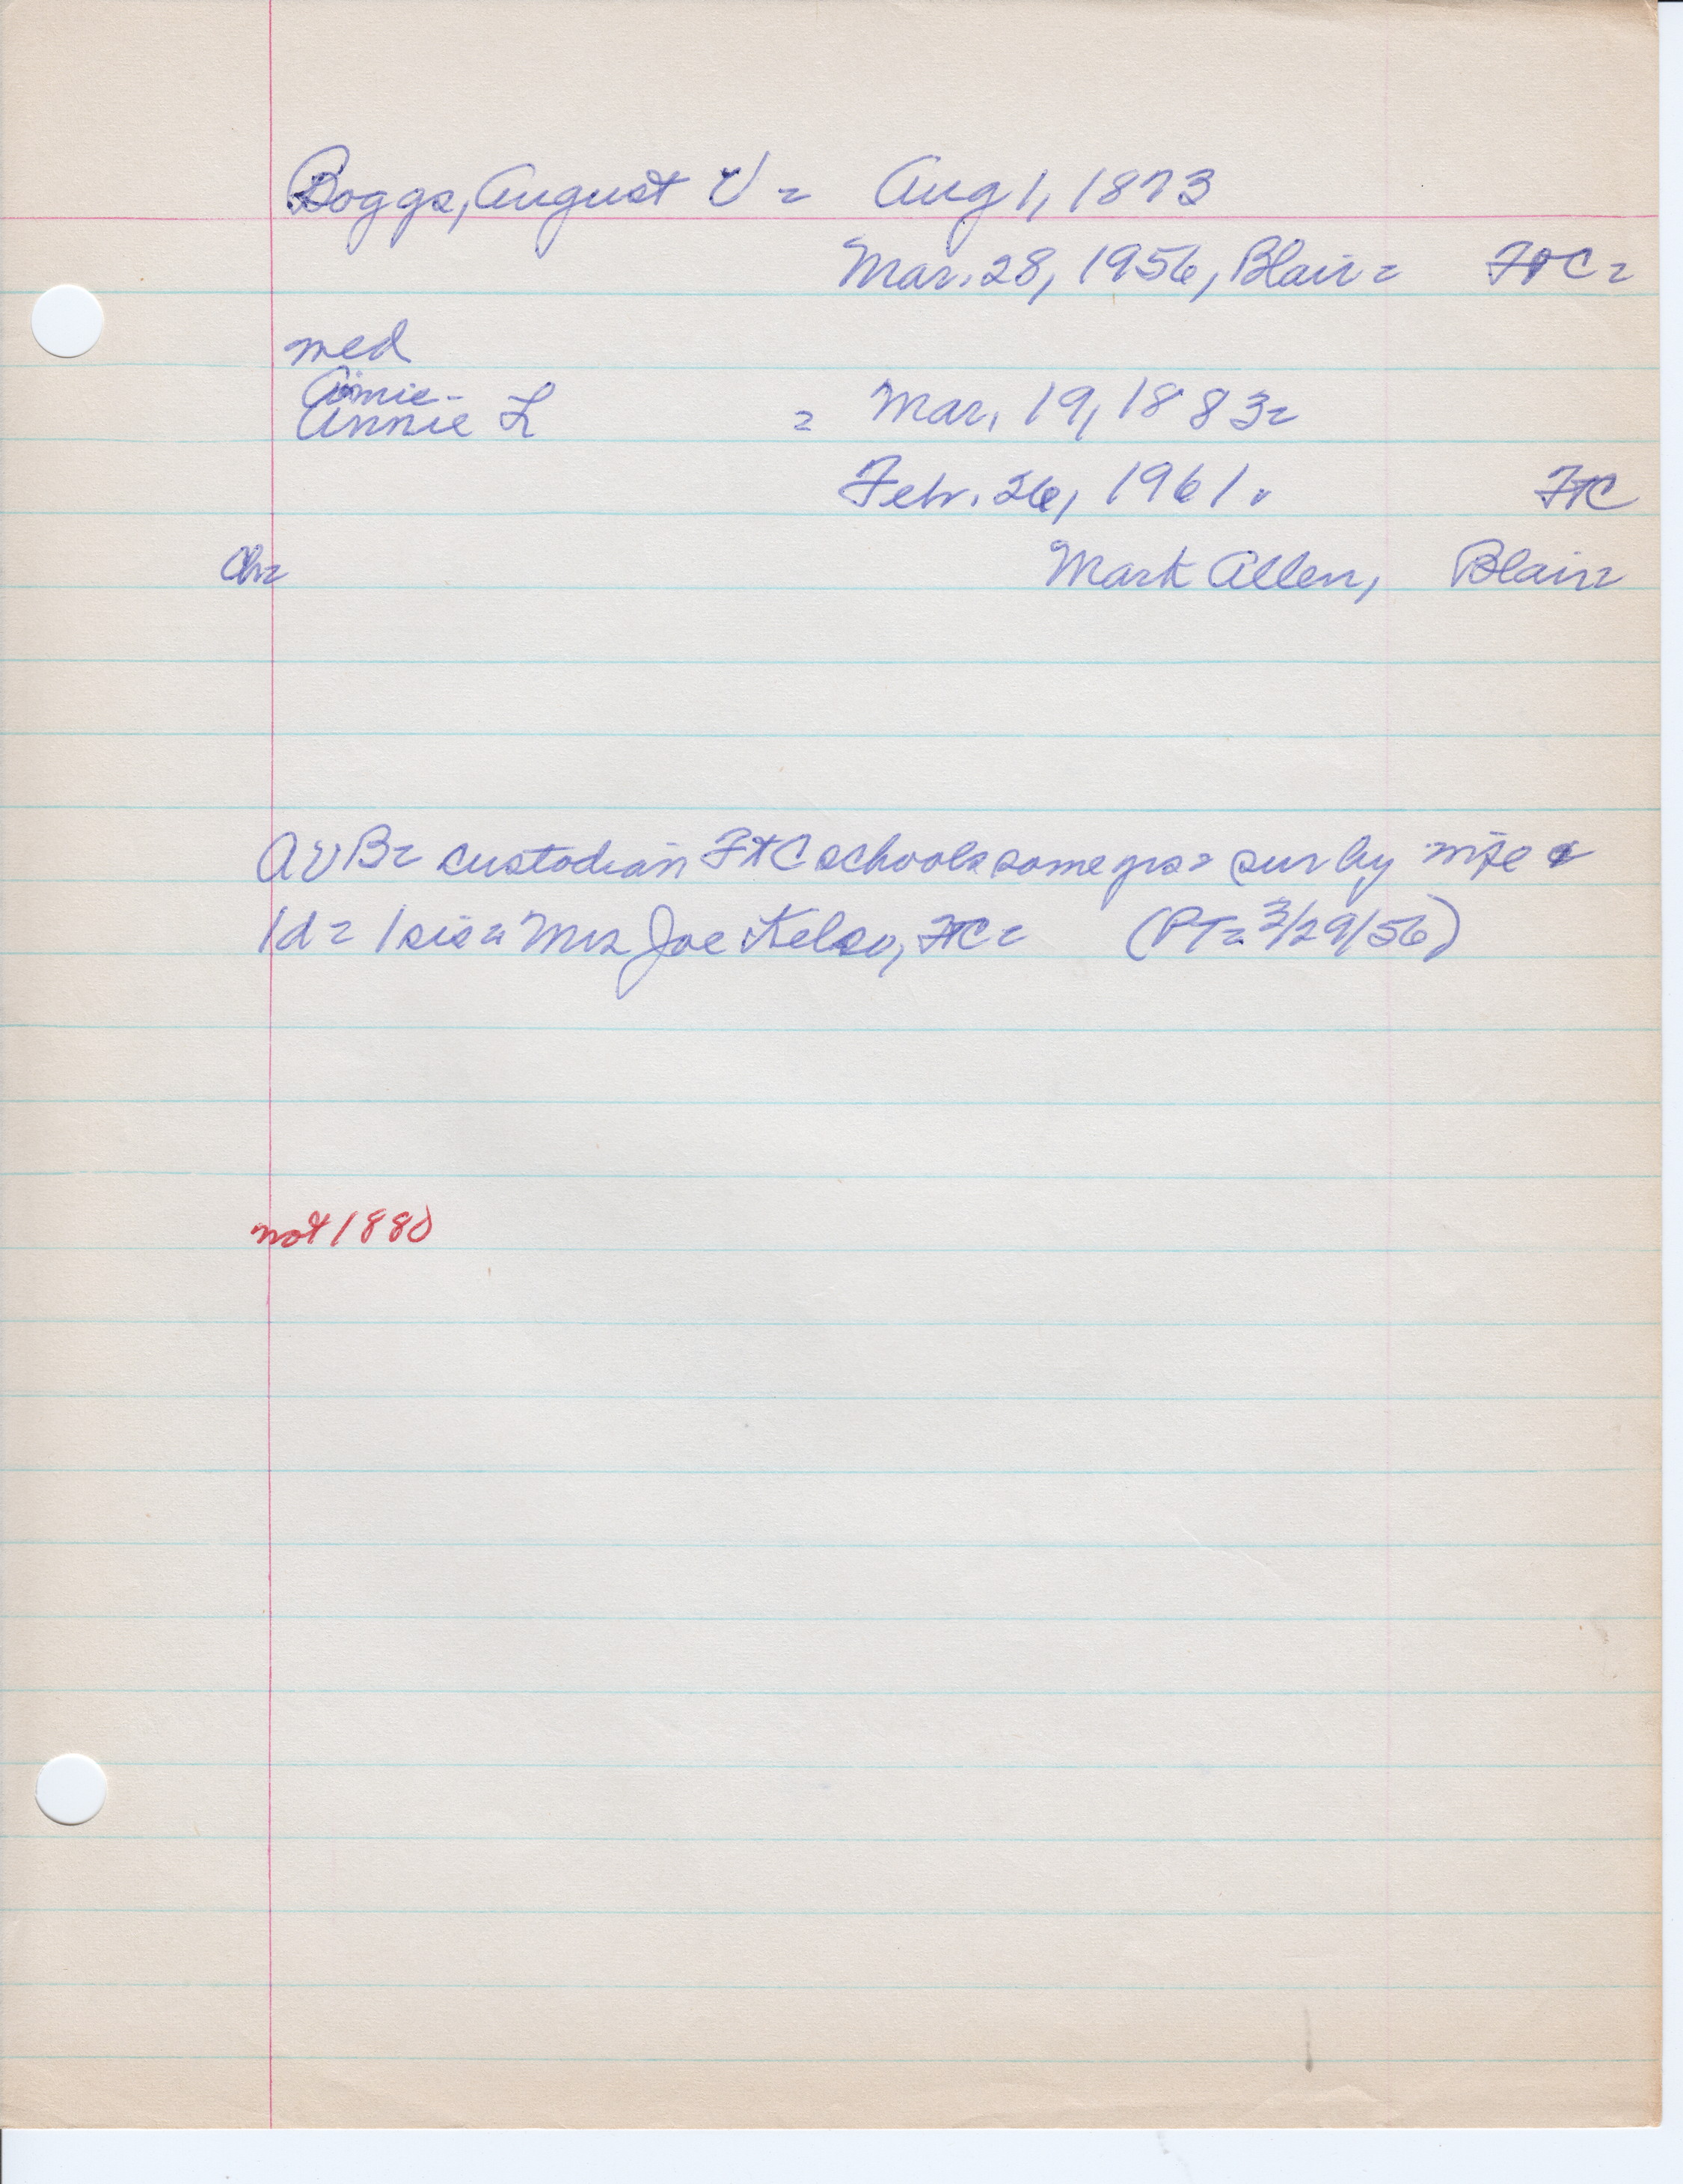 Boggs, August V = Aug 1, 1873
Mar. 28, 1956, Blair = FtC =
med
Amie -
Annie L = Mar. 19, 1883 =
Febr. 26, 1961. FtC
Ch = Mark Allen, Blair =
AVB = custodian FtC schools some yrs = sur by wife &
1d = 1 sis = Mrs Joe Kelso, FtC = (PT = 3/29/56)
not 1880